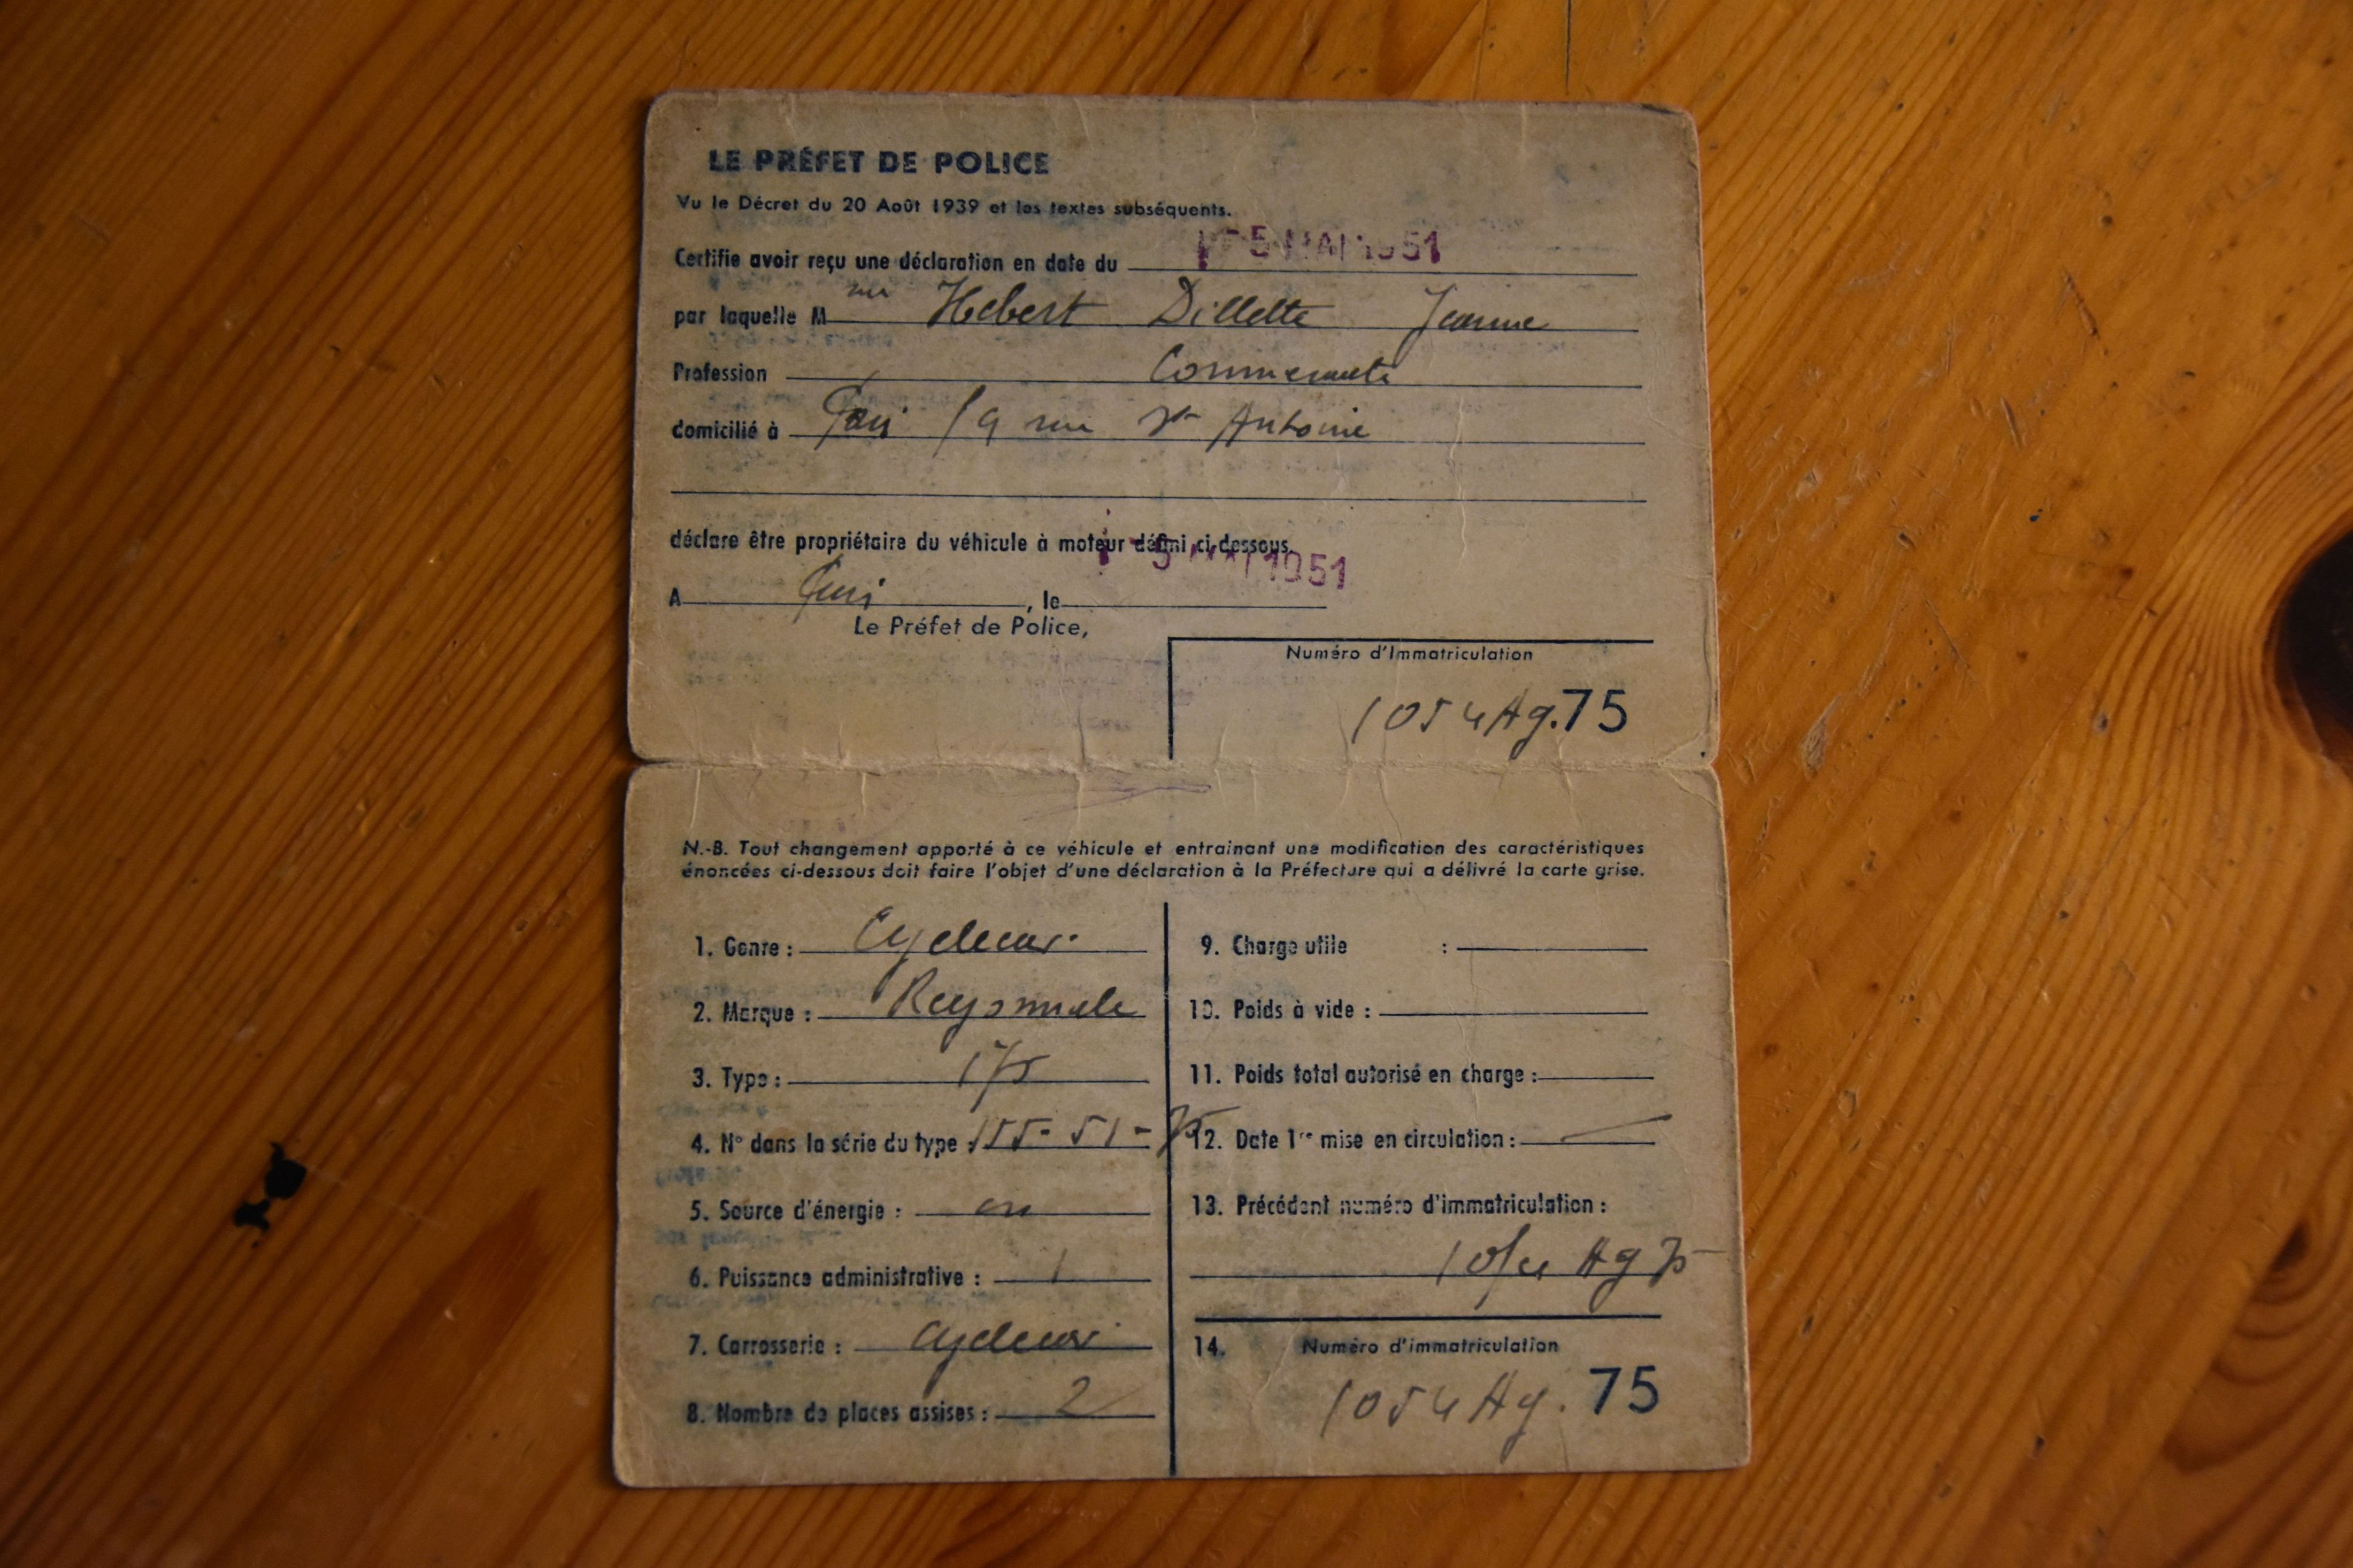 LE PRÉFET DE POLICE
Vu le Décret du 20 Août 1939 et les textes subséquents.
Certifie avoir reçu une déclaration en date du 5 MAI 1951
par laquelle M Hebert Dillette Jeanne
Profession Commercante
domicilié à Paris rue St Antoine
déclare être propriétaire du véhicule à moteur défini ci-dessous.
5 MAI 1951
A Paris, le
Le Préfet de Police,
Numéro d'Immatriculation
1054 Ag.75
N.-B. Tout changement apporté à ce véhicule et entrainant une modification des caractéristiques
énoncées ci-dessous doit faire l'objet d'une déclaration à la Préfecture qui a délivré la carte grise.
1. Genre : Cyclecar
2. Marque :
3. Type : 175
4. N° dans la série du type : 155-51-75
5. Source d'énergie : en
6. Puissance administrative : 1
7. Carrosserie : Cyclecar
8. Nombre de places assises : 2
9. Charge utile :
10. Poids à vide :
11. Poids total autorisé en charge :
12. Date 1re mise en circulation :
13. Précédent numéro d'immatriculation :
Ag 75
14. Numéro d'immatriculation
1054 Ag. 75